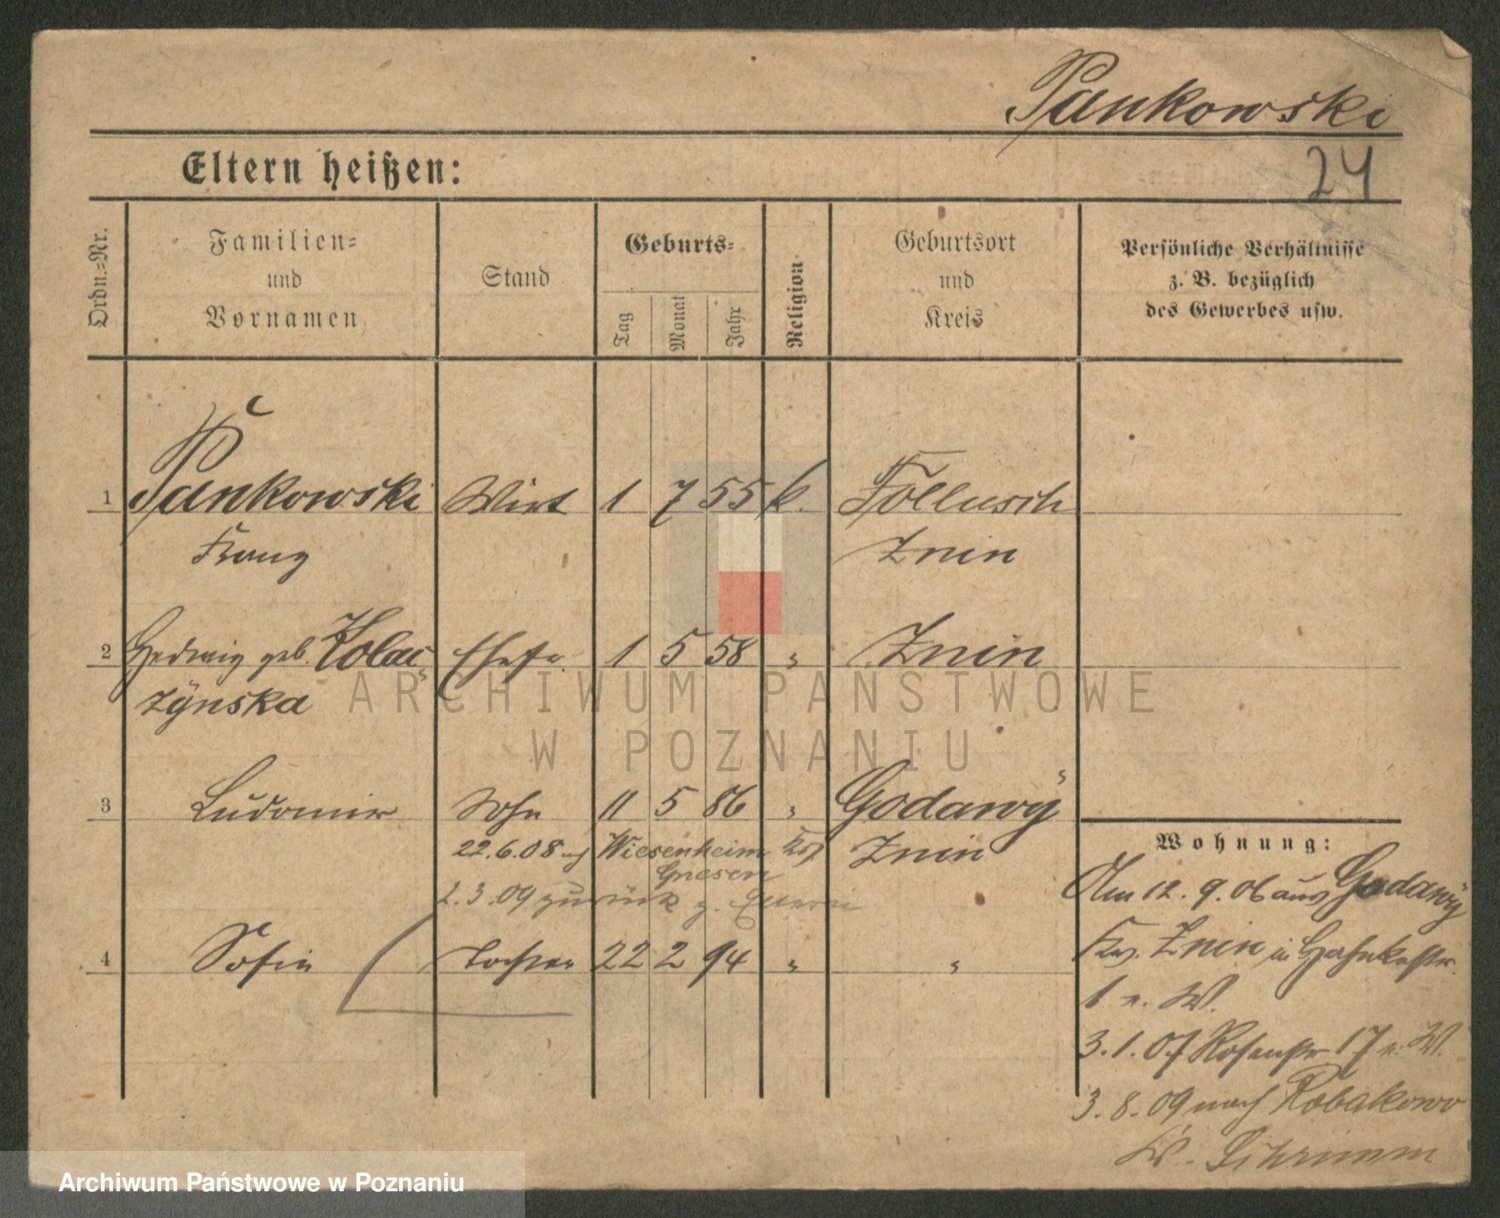 Pankowski
24
Eltern heißen:
Ordn.-Nr.
Familien-
und
Vornamen
Stand
Geburts-
Tag
Monat
Jahr
Religion
Geburtsort
und
Kreis
Persönliche Verhältnisse
z. B. bezüglich
des Gewerbes usw.
1 Pankowski Wirt 1 7 55 k. Follusch
Franz Znin
2 Hedwig geb. Kolac Ehefr. 1 5 58 " Znin
zÿnska
3 Ludomir Sohn 11 5 86 " Godawy
22.6.08 Wiesenheim Znin
Gnesen
2.3.09 zurück z. Eltern
4 Sofie Tochter 22 2 94 " "
Wohnung:
Am 12. 9. 06 aus Godawy
Krs. Znin in
1 e. W.
3.1.07 Rosenstr 17 e. W.
3. 8. 09 nach Robakowo
K. Schrimm
ARCHIWUM PAŃSTWOWE
W POZNANIU
Archiwum Państwowe w Poznaniu